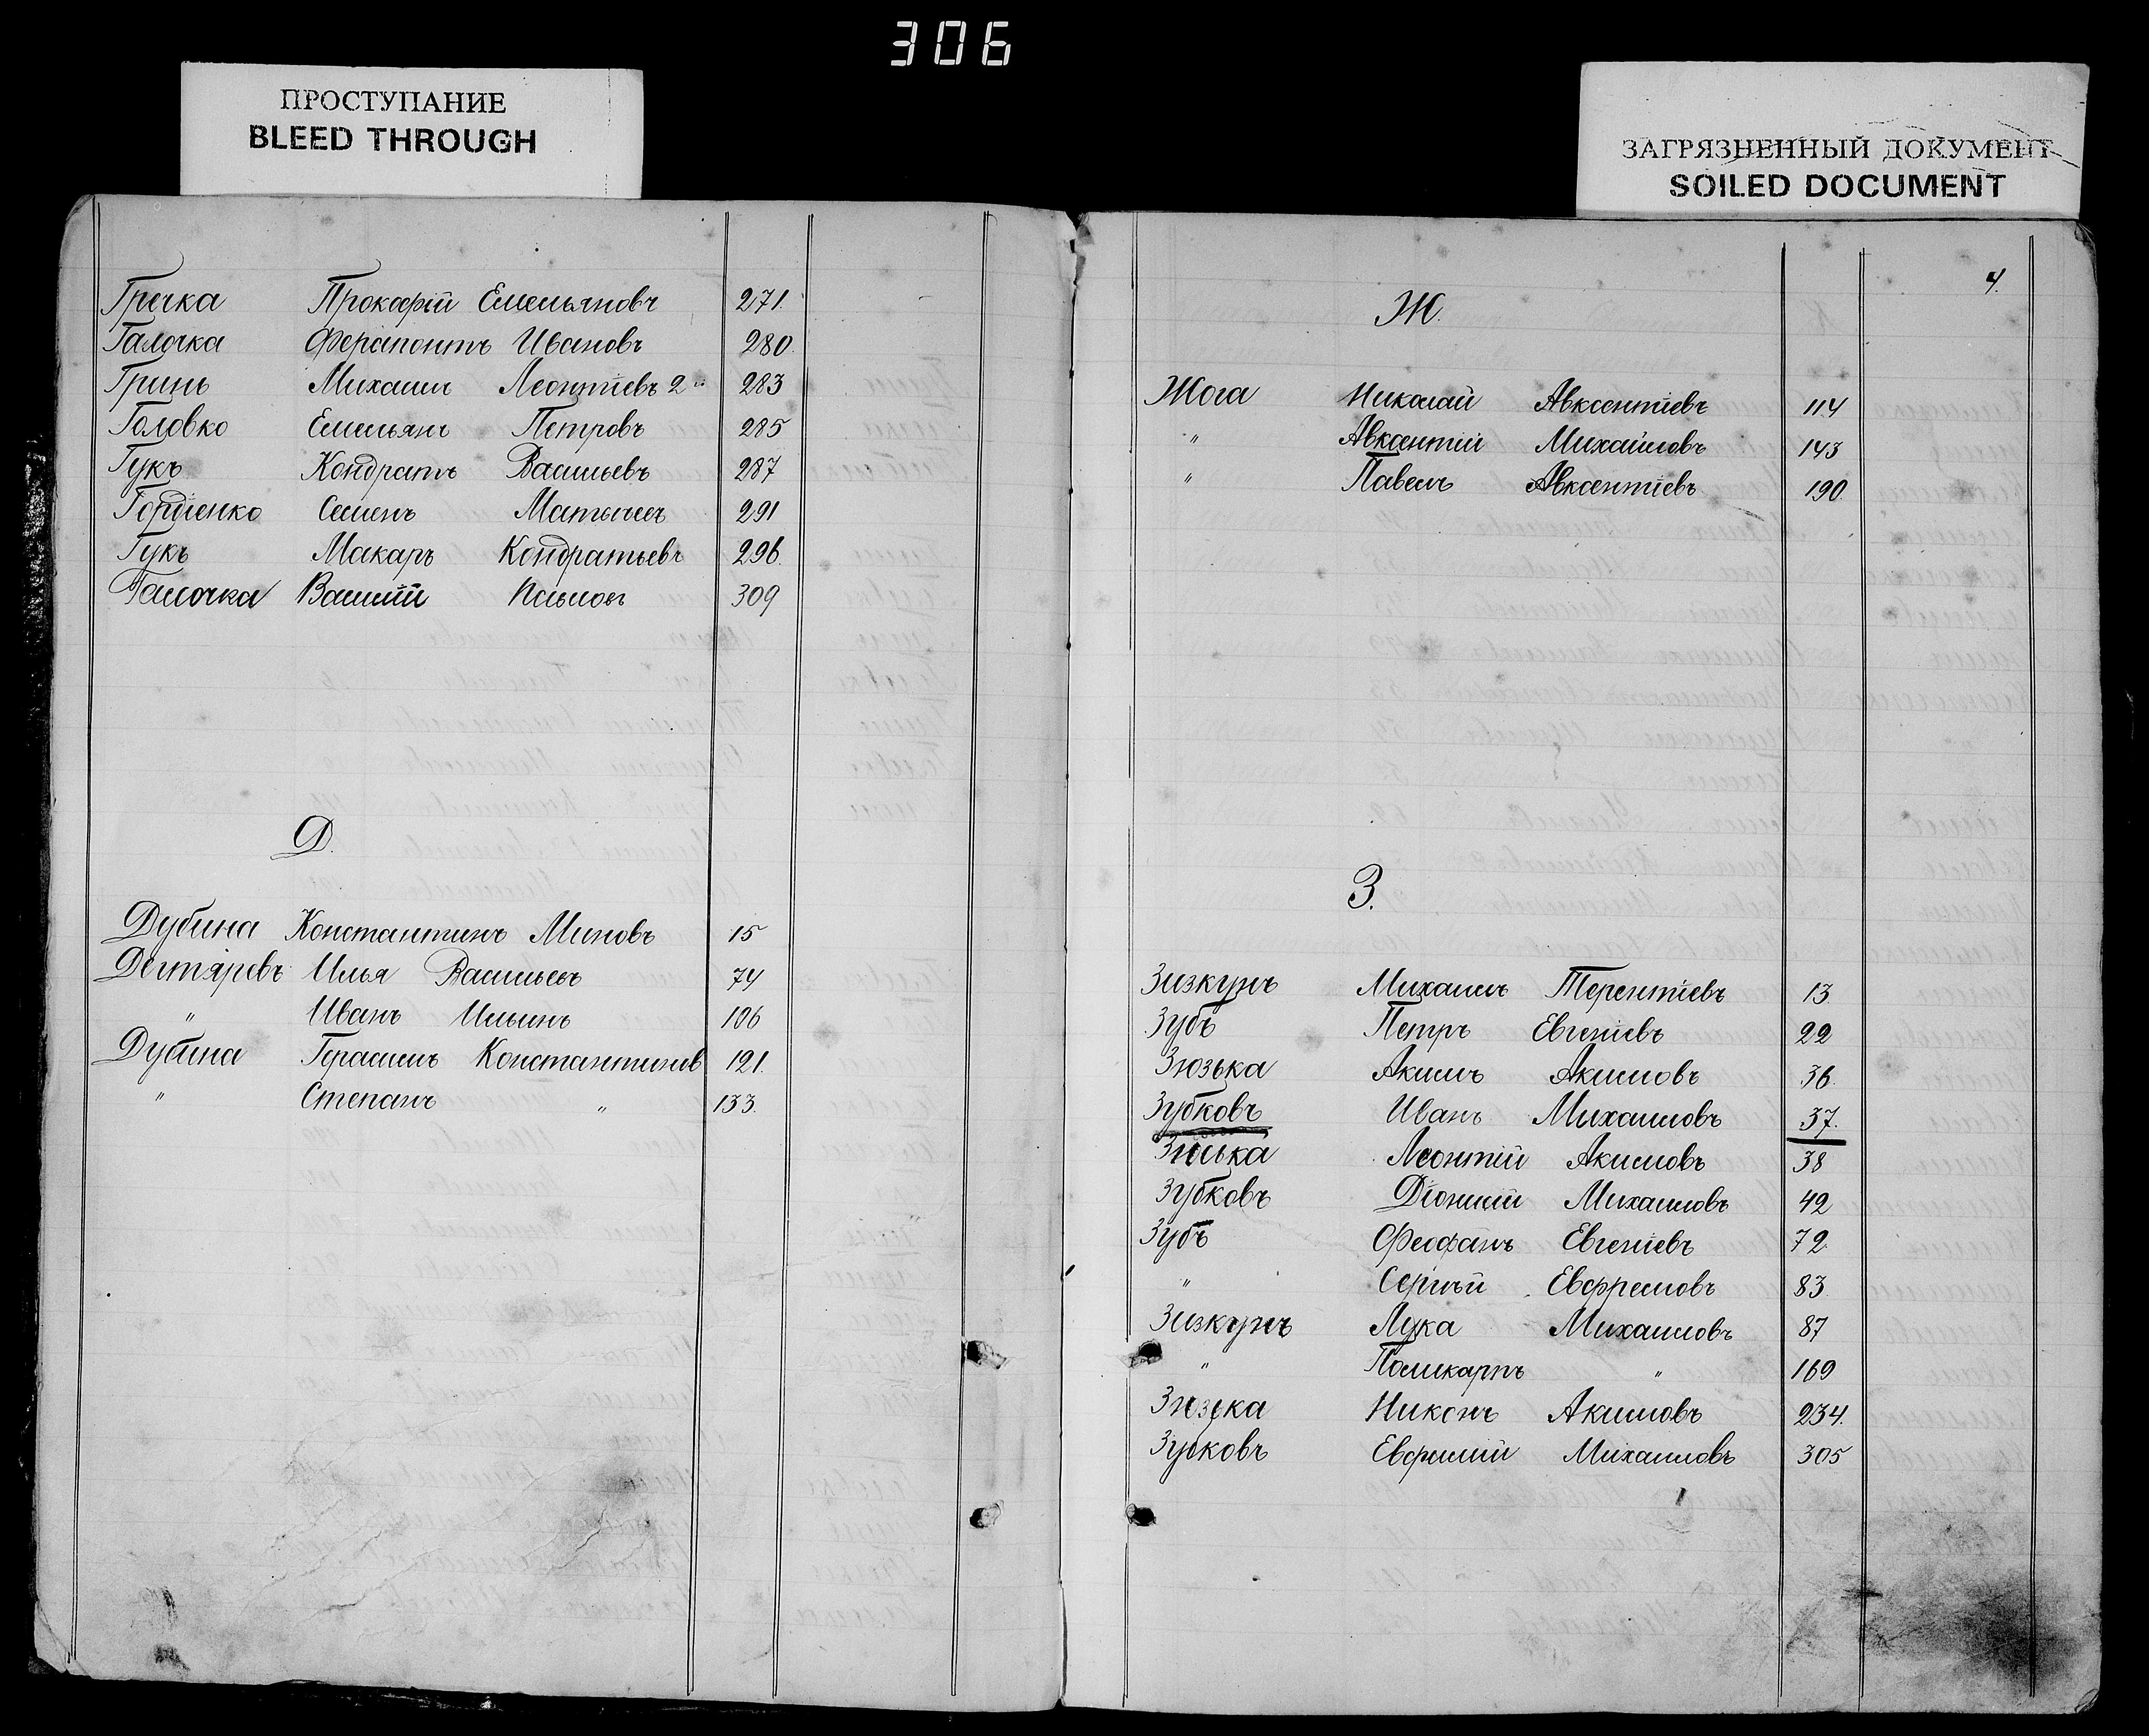 306
ПРОСТУПАНИЕ
BLEED THROUGH
ЗАГРЯЗНЕННЫЙ ДОКУМЕНТ
SOILED DOCUMENT
Гречка Прокофій Емельяновъ 271.
Галочка Ферапонтъ Ивановъ 280.
Гринь Михаилъ Леонтіевъ 2й 283
Головко Емельянъ Петровъ 285
Гукъ Кондратъ Васильевъ 287
Гордіенко Семенъ Матвѣевъ 291
Гукъ Макаръ Кондратьевъ 296.
Галочка Василій 309
Д.
Дубина Константинъ Миновъ 15
Дегтяревъ Илья Васильевъ 74
" Иванъ Ильинъ 106
Дубина Герасимъ Константинов 121.
" Степанъ " 133.
4.
Ж.
Жога Николай Авксентіевъ 114
" Авксентій Михайловъ 143
" Павелъ Авксентіевъ 190
З.
Зизкунъ Михаилъ Терентіевъ 13
Зубъ Петръ Евгеніевъ 22
Зюзька Акимъ Акимовъ 36.
Зубковъ Иванъ Михаиловъ 37.
Зюзька Леонтій Акимовъ 38
Зубковъ Діонисій Михаиловъ 42
Зубъ Феофанъ Евгеніевъ 72
" Сергѣй Евфремовъ 83
Зизкунъ Лука Михаиловъ 87
" Поликарпъ " 169
Зюзька Никонъ Акимовъ 234.
Зубковъ Евфимій Михаиловъ 305